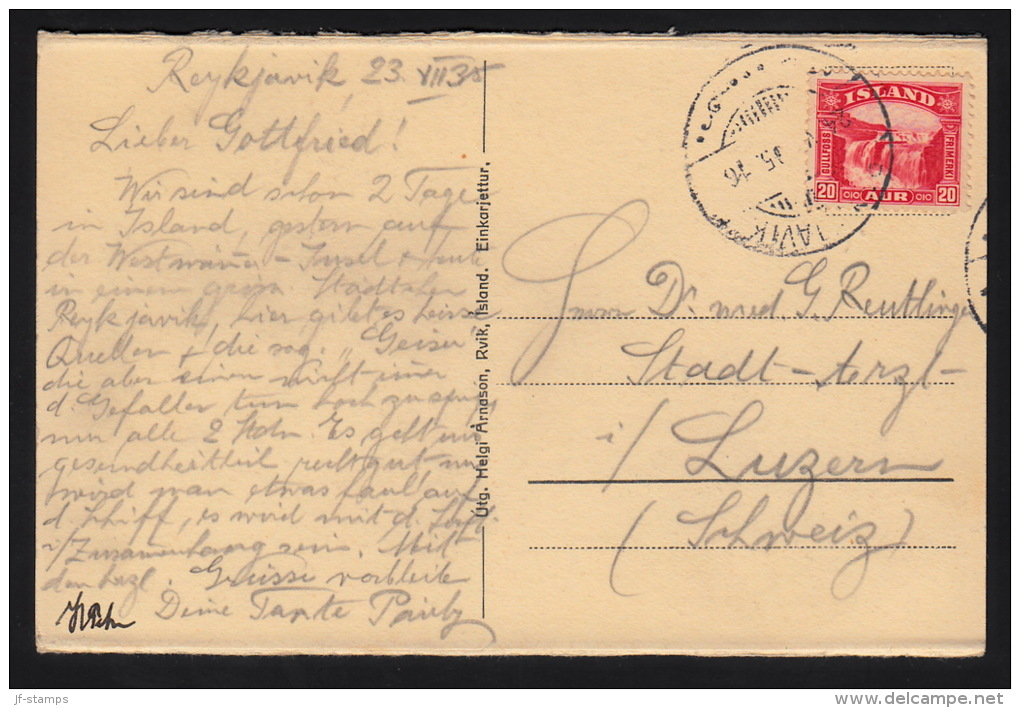 Reykjavik, 23. VII 35
Lieber Gottfried!
Wir sind schon 2 Tage
in Island, gestern auf
der Westmänner-Insel & heute
in einem Städtchen
Reykjavik, hier gibt es heisse
Quellen & die sog. „Geiser
die aber einem nicht immer
d. Gefallen tun hoch zu
nur alle 2 Stdn. Es geht uns
gesundheitlich recht gut nur
wird man etwas faul auf
d. Schiff, es wird mit d.
i/ Zusammenhang sein. Mit
den herzl. Grüssen verbleibe
Deine Tante
Útg. Helgi Árnason, Rvik, Ísland. Einkarjettur.
ISLAND
GULLFOSS
FRIMERKI
20 AUR 20
JAVIK
Herrn Dr. med. G. Reutlinger
Stadt-Arzt
i/ Luzern
(Schweiz)
jf-stamps
delcampe.net